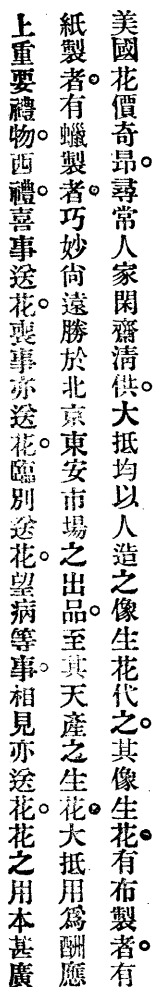 美國花價奇昻。尋常人家閑齋清供。大抵均以人造之像生花代之。其像生花。有布製者。有
紙製者。有蠟製者。巧妙尙遠勝於北京東安市場之出品。至其天產之生花。大抵用爲酬應
上重要禮物。西禮。喜事送花。喪事亦送花。臨別送花。望病等事。相見亦送花。花之用本甚廣